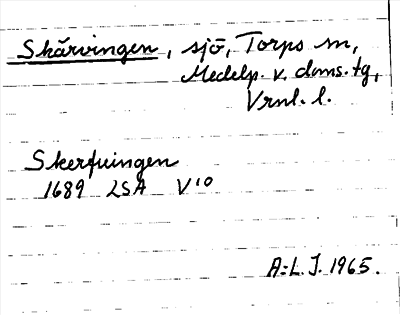 Skärvingen, sjö, Torps sn,
Medelp. v. doms. tg,
Vrnl. l.
Skerfuingen
1689 LSA V10
A-L. J. 1965.